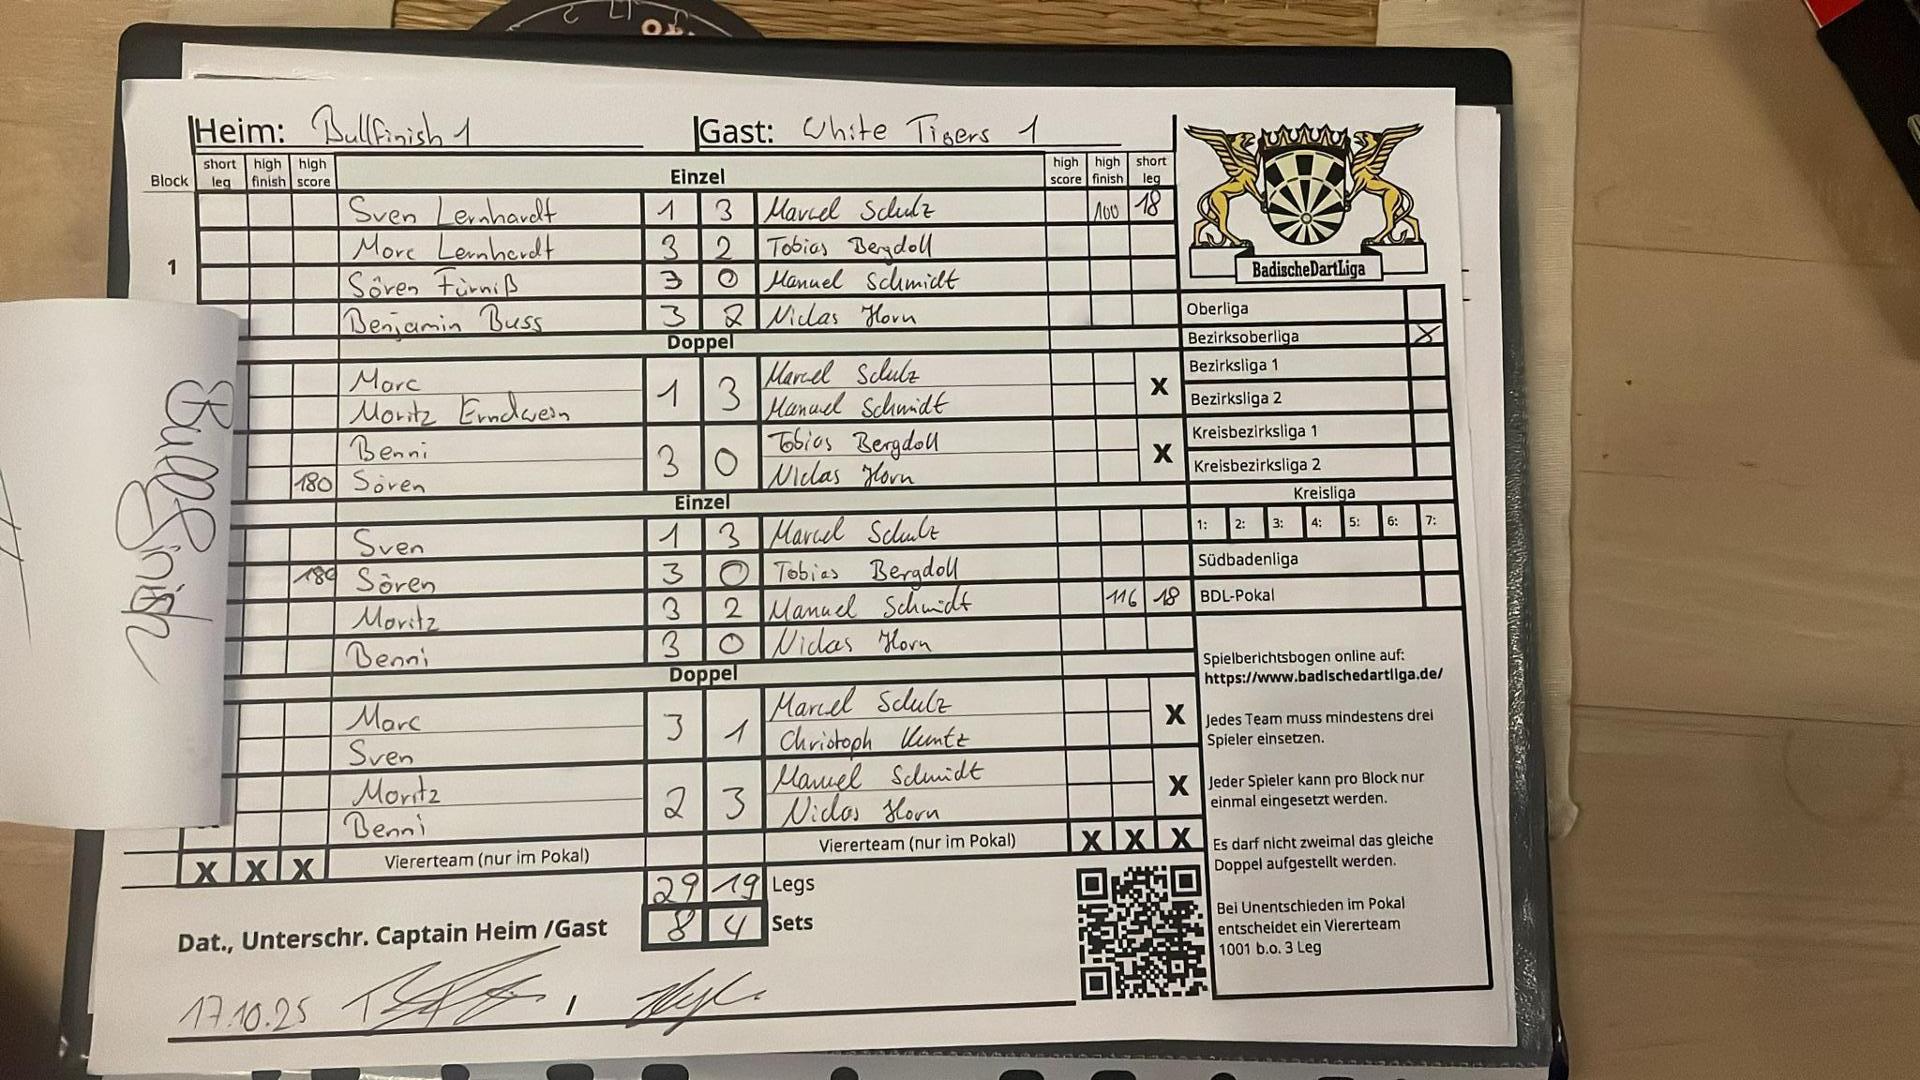 Heim: Bullfinish 1 Gast: White Tigers 1
Block short leg high finish high score Einzel high score high finish short leg
1
Sven Lernhardt 1 3 Marcel Schulz 100 18
Marc Lernhardt 3 2 Tobias Bergdoll
Sören Fürniß 3 0 Manuel Schmidt
Benjamin Buss 3 2 Niclas Horn
Doppel
Marc 1 3 Marcel Schulz
Moritz Manuel Schmidt X
Benni 3 0 Tobias Bergdoll
180 Sören Niclas Horn X
Einzel
Sven 1 3 Marcel Schulz
180 Sören 3 0 Tobias Bergdoll
Moritz 3 2 Manuel Schmidt 116 18
Benni 3 0 Niclas Horn
Doppel
Marc 3 1 Marcel Schulz X
Sven Christoph Kuntz
Moritz 2 3 Manuel Schmidt X
Benni Niclas Horn
X X X Viererteam (nur im Pokal) Viererteam (nur im Pokal) X X X
29 19 Legs
8 4 Sets
Dat., Unterschr. Captain Heim /Gast
17.10.25 /
BadischeDartLiga
Oberliga
Bezirksoberliga X
Bezirksliga 1
Bezirksliga 2
Kreisbezirksliga 1
Kreisbezirksliga 2
Kreisliga
1: 2: 3: 4: 5: 6: 7:
Südbadenliga
BDL-Pokal
Spielberichtsbogen online auf:
https://www.badischedartliga.de/
Jedes Team muss mindestens drei
Spieler einsetzen.
Jeder Spieler kann pro Block nur
einmal eingesetzt werden.
Es darf nicht zweimal das gleiche
Doppel aufgestellt werden.
Bei Unentschieden im Pokal
entscheidet ein Viererteam
1001 b.o. 3 Leg
Bullfinish